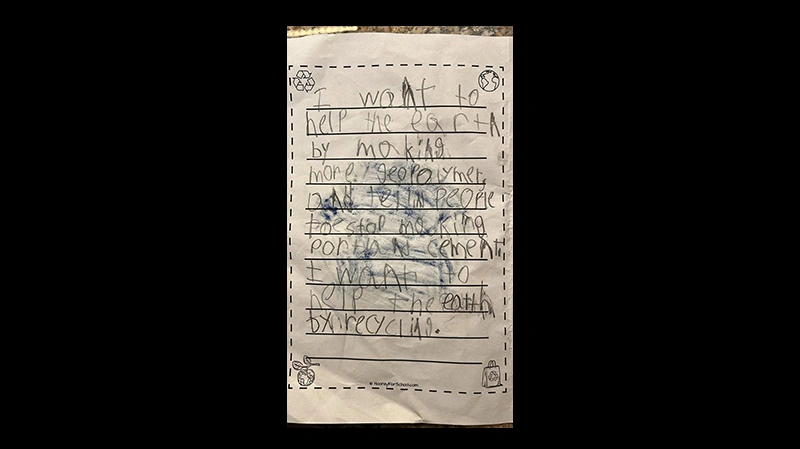 I want to
help the earth
by making
more geopolymer,
and tellin people
to stop making
portland cement.
I want to
help the earth
by recycling.
© HoorayForSchool.com